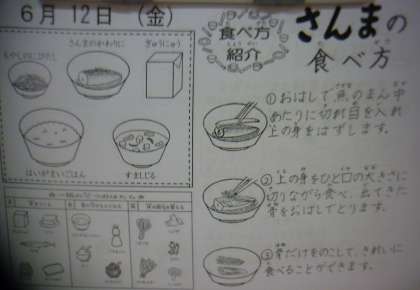 6月12日(金)
食べ方
紹介
さんまの
食べ方
もやしのにびたし
さんまのかわりに
ぎゅうにゅう
はいがまいごはん
すましじる
①おはしで魚のまん中
あたりに切れ目を入れ
上の身をはずします。
②上の身をひと口の大きさに
切りながら食べ、出てきた
骨をおはしでとります。
③骨だけをのこして、きれいに
食べることができます。